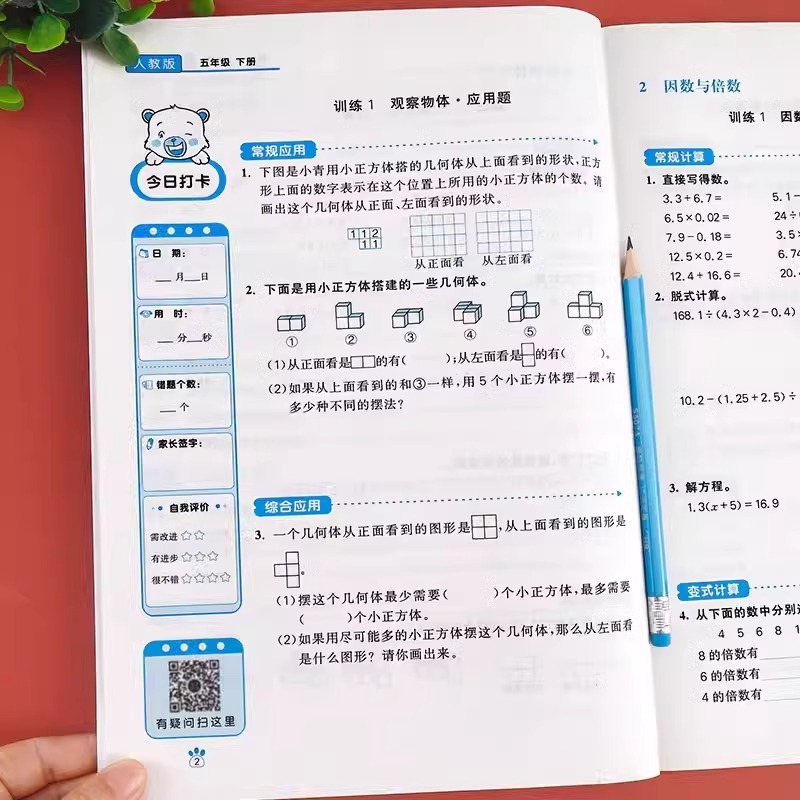 人教版 五年级 下册
训练1 观察物体·应用题
今日打卡
日 期:
月 日
用 时:
分 秒
错题个数:
个
家长签字:
自我评价
需改进☆☆
有进步☆☆☆
很不错☆☆☆☆
有疑问扫这里
2
常规应用
1. 下图是小青用小正方体搭的几何体从上面看到的形状,正方
形上面的数字表示在这个位置上所用的小正方体的个数。请
画出这个几何体从正面、左面看到的形状。
1 1 2
1 1
从正面看 从左面看
2. 下面是用小正方体搭建的一些几何体。
① ② ③ ④ ⑤ ⑥
(1)从正面看是 的有( );从左面看是 的有( )。
(2)如果从上面看到的和③一样,用5个小正方体摆一摆,有
多少种不同的摆法?
综合应用
3. 一个几何体从正面看到的图形是 ,从上面看到的图形是
。
(1)摆这个几何体最少需要( )个小正方体,最多需要
( )个小正方体。
(2)如果用尽可能多的小正方体摆这个几何体,那么从左面看
是什么图形?请你画出来。
2 因数与倍数
训练1 因数
常规计算
1. 直接写得数。
3.3+6.7= 5.1-
6.5×0.02= 24÷
7.9-0.18= 3.5×
12.5×0.2= 6.74
12.4+16.6= 20.
2. 脱式计算。
168.1÷(4.3×2-0.4)
10.2-(1.25+2.5)÷
3. 解方程。
1.3(x+5)=16.9
变式计算
4. 从下面的数中分别
4 5 6 8 1
8的倍数有
6的倍数有
4的倍数有